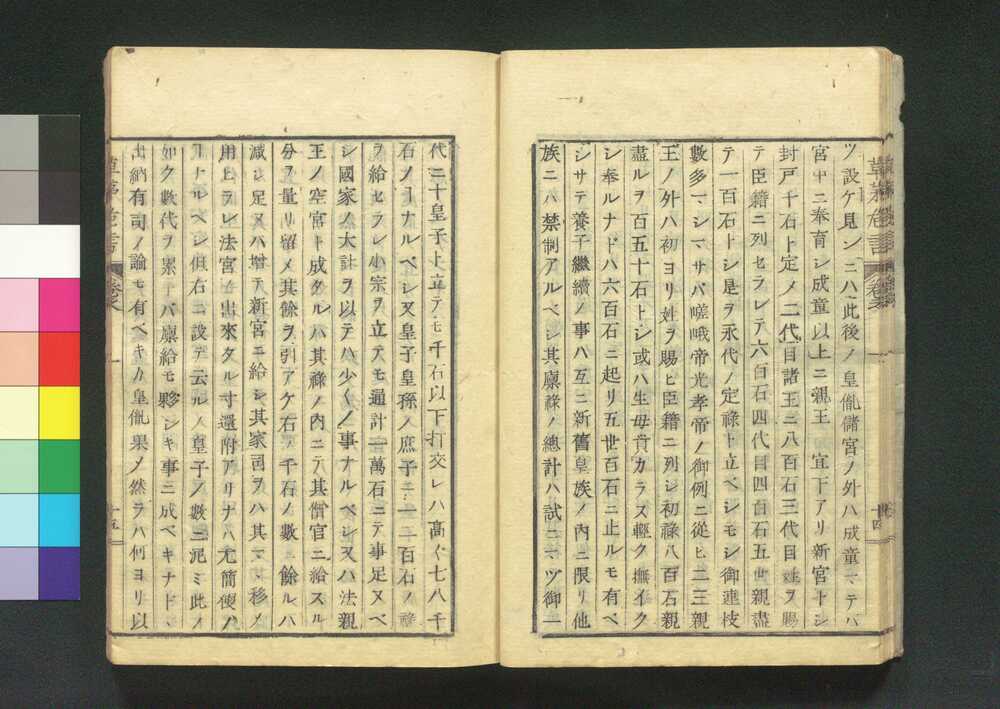 ツ設ケ見ンニハ此後ノ皇胤儲宮ノ外ハ成童マテハ
宮中ニ奉育シ成童以上ニ親王 宣下アリ新宮トシ
封戸千石ト定メ二代目諸王ニ八百石三代目姓ヲ賜
テ臣籍ニ列セラレテ六百石四代目四百石五世親盡
テ一百石トシ是ヲ永代ノ定祿ト立ベシモシ御連枝
數多マシマサバ嵯峨帝光孝帝ノ御例ニ從ヒ二三親
王ノ外ハ初ヨリ姓ヲ賜ヒ臣籍ニ列シ初祿八百石親
盡ルヲ百五十石トシ或ハ生母貴カラズ輕ク撫イク
シ奉ルナドハ六百石ニ起リ五世百石ニ止ルモ有ベ
シサテ養子繼續ノ事ハ互ニ新舊皇族ノ內ニ限リ他
族ニハ禁制アルベシ其廩祿ノ總計ハ試ニマヅ御一
代二十皇子ト立テモ千石以下打交レハ高〱七八千
石ノ ナルベシ又皇子皇孫ノ庶子ニ一二百石ノ祿
ヲ給セラレ小宗ヲ立テモ通計一萬石ニテ事足ヌベ
シ國家ノ大計ヲ以テハ少〱ノ事ナルベシ又ハ法親
王ノ空宮ト成タルハ其祿ノ內ニテ其僧官ニ給スル
分ヲ量リ留メ其餘ヲ引アケ右ノ千石ノ數ニ餘ルハ
減シ足ヌハ增テ新宮ニ給シ其家司ヲハ其マヽ移メ
用ヒラレ法宮 出來タル寸還附アリナハ尤簡便ノ
トルベシ但右ニ設テ云ルノ皇子ノ數ニ泥ミ此ノ
如ク數代ヲ累子バ廩給モ夥シキ事ニ成ベキナドヽ
出納有司ノ論モ有ベキカ皇胤果メ然ラバ何ヨリ以
草茅危言
卷之一
十四
十五